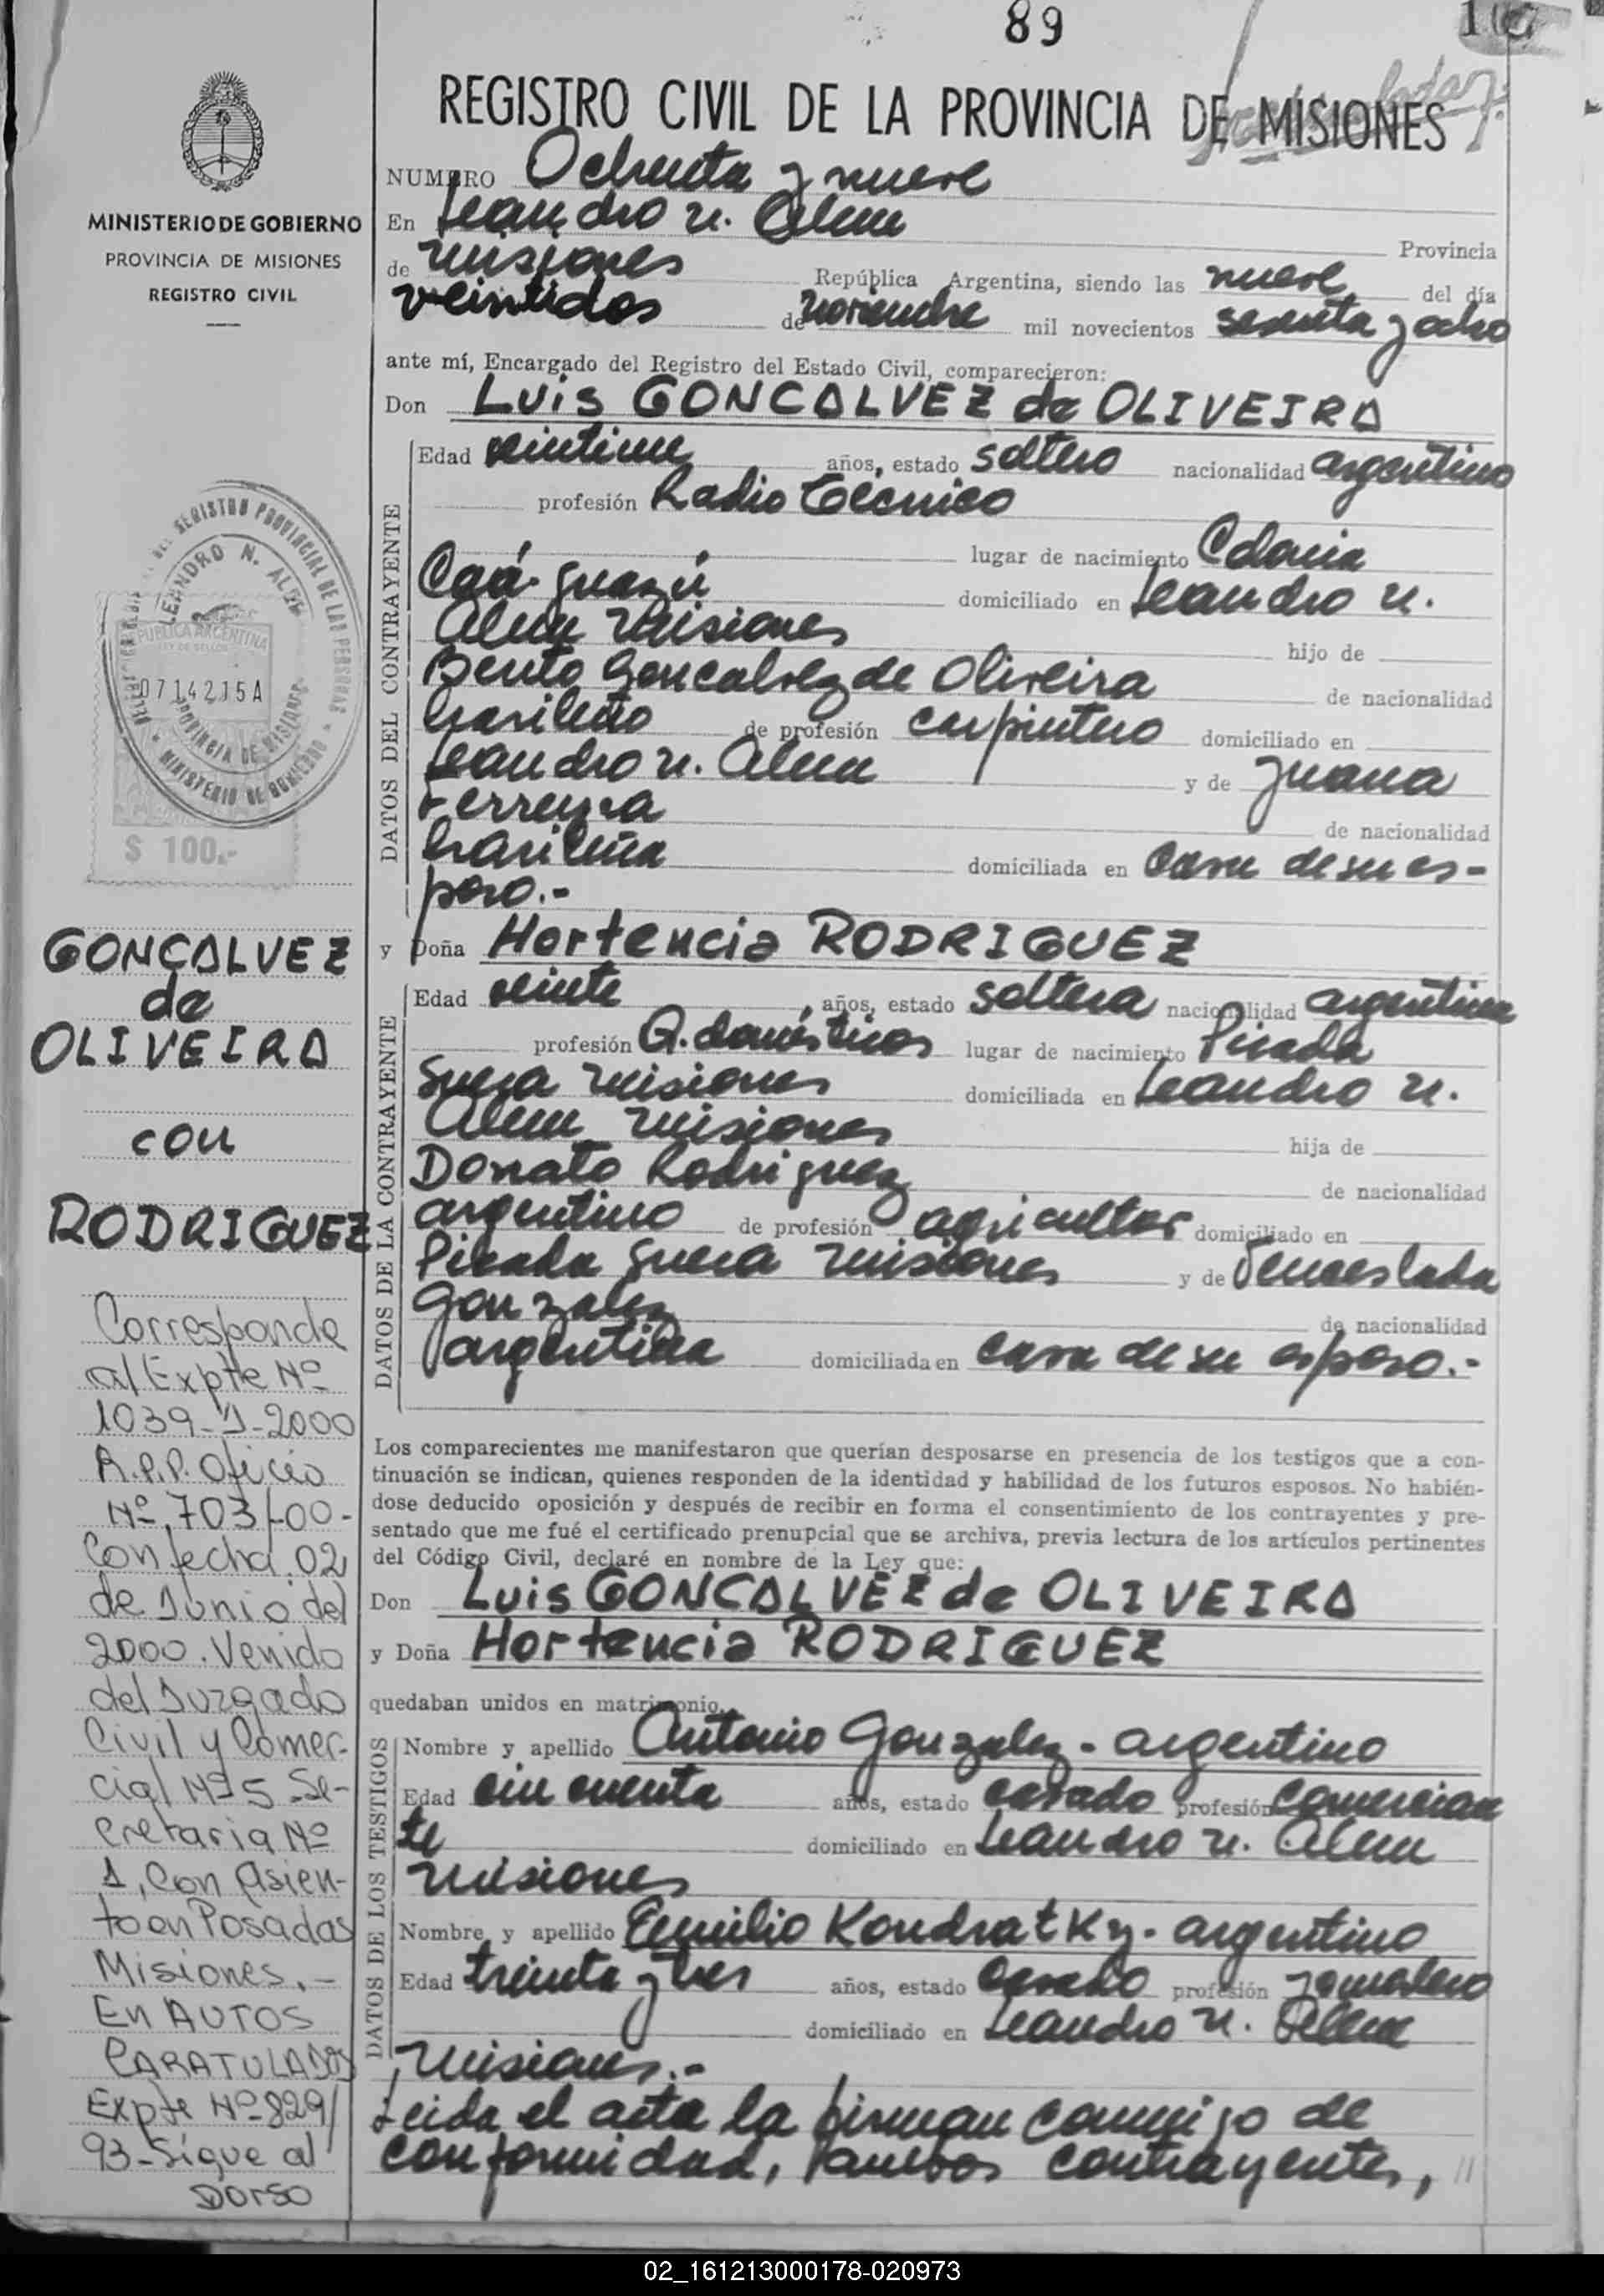 89
107
REGISTRO CIVIL DE LA PROVINCIA DE MISIONES
MINISTERIO DE GOBIERNO
PROVINCIA DE MISIONES
REGISTRO CIVIL
NUMERO Ochenta y nueve
En Leandro N. Alem Provincia
de Misiones República Argentina, siendo las nueve del día
veintidos de noviembre mil novecientos sesenta y ocho
ante mí, Encargado del Registro del Estado Civil, comparecieron:
Don Luis GONCALVEZ de OLIVEIRA
DATOS DEL CONTRAYENTE
Edad veintiun años, estado soltero nacionalidad argentino
profesión Radio Técnico
lugar de nacimiento Colonia
Caá-guazú domiciliado en Leandro N.
Alem Misiones hijo de
Bento Goncalvez de Oliveira de nacionalidad
brasileño de profesión carpintero domiciliado en
Leandro N. Alem y de Juana
Ferreyra de nacionalidad
brasileña domiciliada en casa de su es-
poso.-
y Doña Hortencia RODRIGUEZ
DATOS DE LA CONTRAYENTE
Edad veinte años, estado soltera nacionalidad argentina
profesión Q. domésticos lugar de nacimiento Picada
Sueca Misiones domiciliada en Leandro N.
Alem Misiones hija de
Donato Rodriguez de nacionalidad
argentino de profesión agricultor domiciliado en
Picada Sueca Misiones y de Senceslada
Gonzalez de nacionalidad
argentina domiciliada en casa de su esposo.-
Los comparecientes me manifestaron que querían desposarse en presencia de los testigos que a con-
tinuación se indican, quienes responden de la identidad y habilidad de los futuros esposos. No habién-
dose deducido oposición y después de recibir en forma el consentimiento de los contrayentes y pre-
sentado que me fué el certificado prenupcial que se archiva, previa lectura de los artículos pertinentes
del Código Civil, declaré en nombre de la Ley que:
Don Luis GONCALVEZ de OLIVEIRA
y Doña Hortencia RODRIGUEZ
quedaban unidos en matrimonio.
DATOS DE LOS TESTIGOS
Nombre y apellido Antonio Gonzalez - argentino
Edad cincuenta años, estado casado profesión comercian
te domiciliado en Leandro N. Alem
Misiones
Nombre y apellido Emilio Kondratky - argentino
Edad treinta y tres años, estado casado profesión jornalero
domiciliado en Leandro N. Alem
Misiones.-
Leida el acta la firman conmigo de
conformidad, ambos contrayentes, //
REGISTRO PROVINCIAL DE LAS PERSONAS
LEANDRO N. ALEM
PROVINCIA DE MISIONES
MINISTERIO DE GOBIERNO
REPUBLICA ARGENTINA
LEY DE SELLOS
0714215A
$ 100.-
GONCALVEZ
de
OLIVEIRA
con
RODRIGUEZ
Corresponde
al Expte Nº
1039-J-2000
R.P.P. Oficio
Nº 703/-00-
Con fecha 02
de Junio del
2000. Venido
del Juzgado
Civil y Comer-
cial Nº 5 Se-
cretaria Nº
1, Con Asien-
to en Posadas
Misiones.-
En AUTOS
CARATULADOS
Expte Nº 829/
93-Sigue al
Dorso
02_161213000178-020973